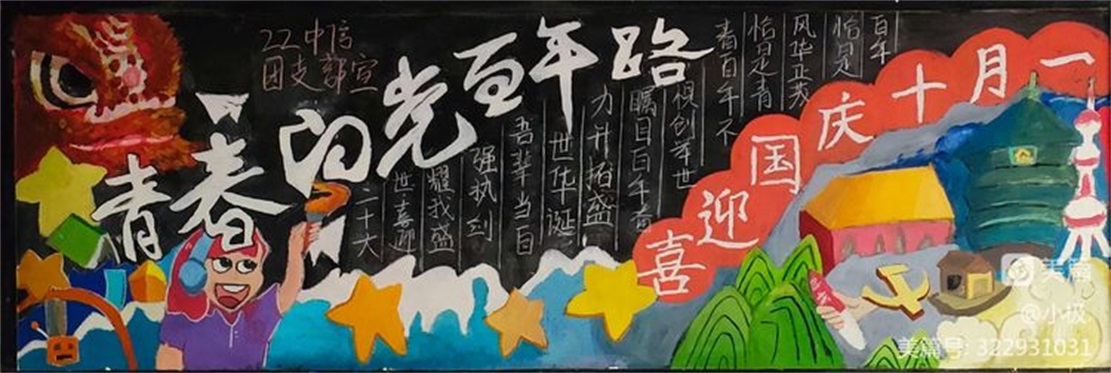 22中信
团支部宣
青春向党百年路
百年
恰是
风华正茂
恰是青
春百年不
惧创举世
瞩目百年奋
力开拓盛
世华诞
吾辈当自
强执到
耀我盛
世喜迎
二十大
喜迎国庆十月一
美篇
@小极
美篇号: 322931031